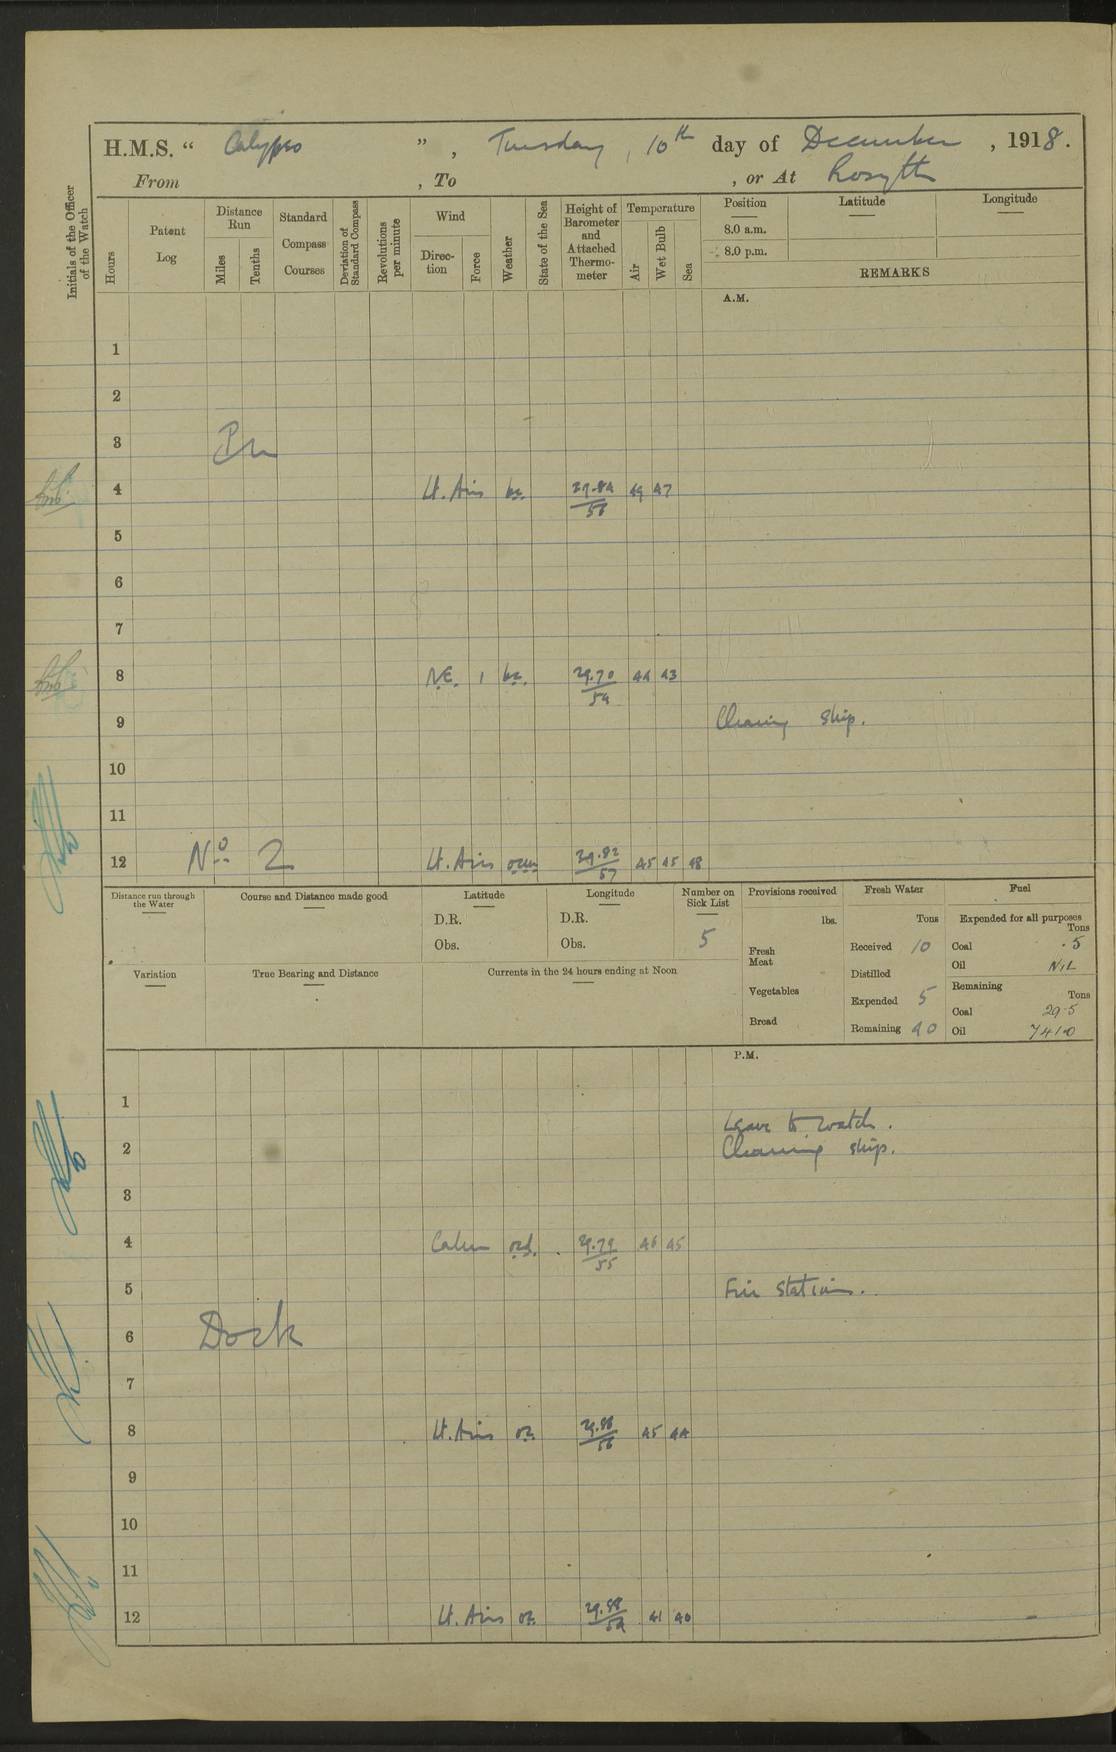 H.M.S. “ Calypso ” , Tuesday , 10th day of December , 1918.
From , To , or At Rosyth
Initials of the Officer of the Watch
Hours
Patent Log
Distance Run
Miles
Tenths
Standard Compass Courses
Deviation of Standard Compass
Revolutions per minute
Wind
Direction
Force
Weather
State of the Sea
Height of Barometer and Attached Thermometer
Temperature
Air
Wet Bulb
Sea
Position Latitude Longitude
8.0 a.m.
8.0 p.m.
REMARKS
A.M.
1
2
3
4 Lt. Airs bc. 49 47
5
6
7
8 NE. 1 bc. 29.70 44 43
54
9 Cleaning ship.
10
11
12 No 2 Lt. Airs 29.82 45 45 48
57
Distance run through the Water
Course and Distance made good
Latitude
D.R.
Obs.
Longitude
D.R.
Obs.
Number on Sick List
5
Variation
True Bearing and Distance
Currents in the 24 hours ending at Noon
Provisions received
lbs.
Fresh Meat
Vegetables
Bread
Fresh Water
Tons
Received 10
Distilled
Expended 5
Remaining 40
Fuel
Expended for all purposes
Tons
Coal .5
Oil NIL
Remaining
Tons
Coal 29.5
Oil 741.0
P.M.
1
Leave to watch.
2 Cleaning ship.
3
4 Calm 29.79 46 45
55
5 Fire Stations.
6 Dock
7
8 Lt. Airs 45 44
56
9
10
11
12 Lt. Airs 29.88 41 40